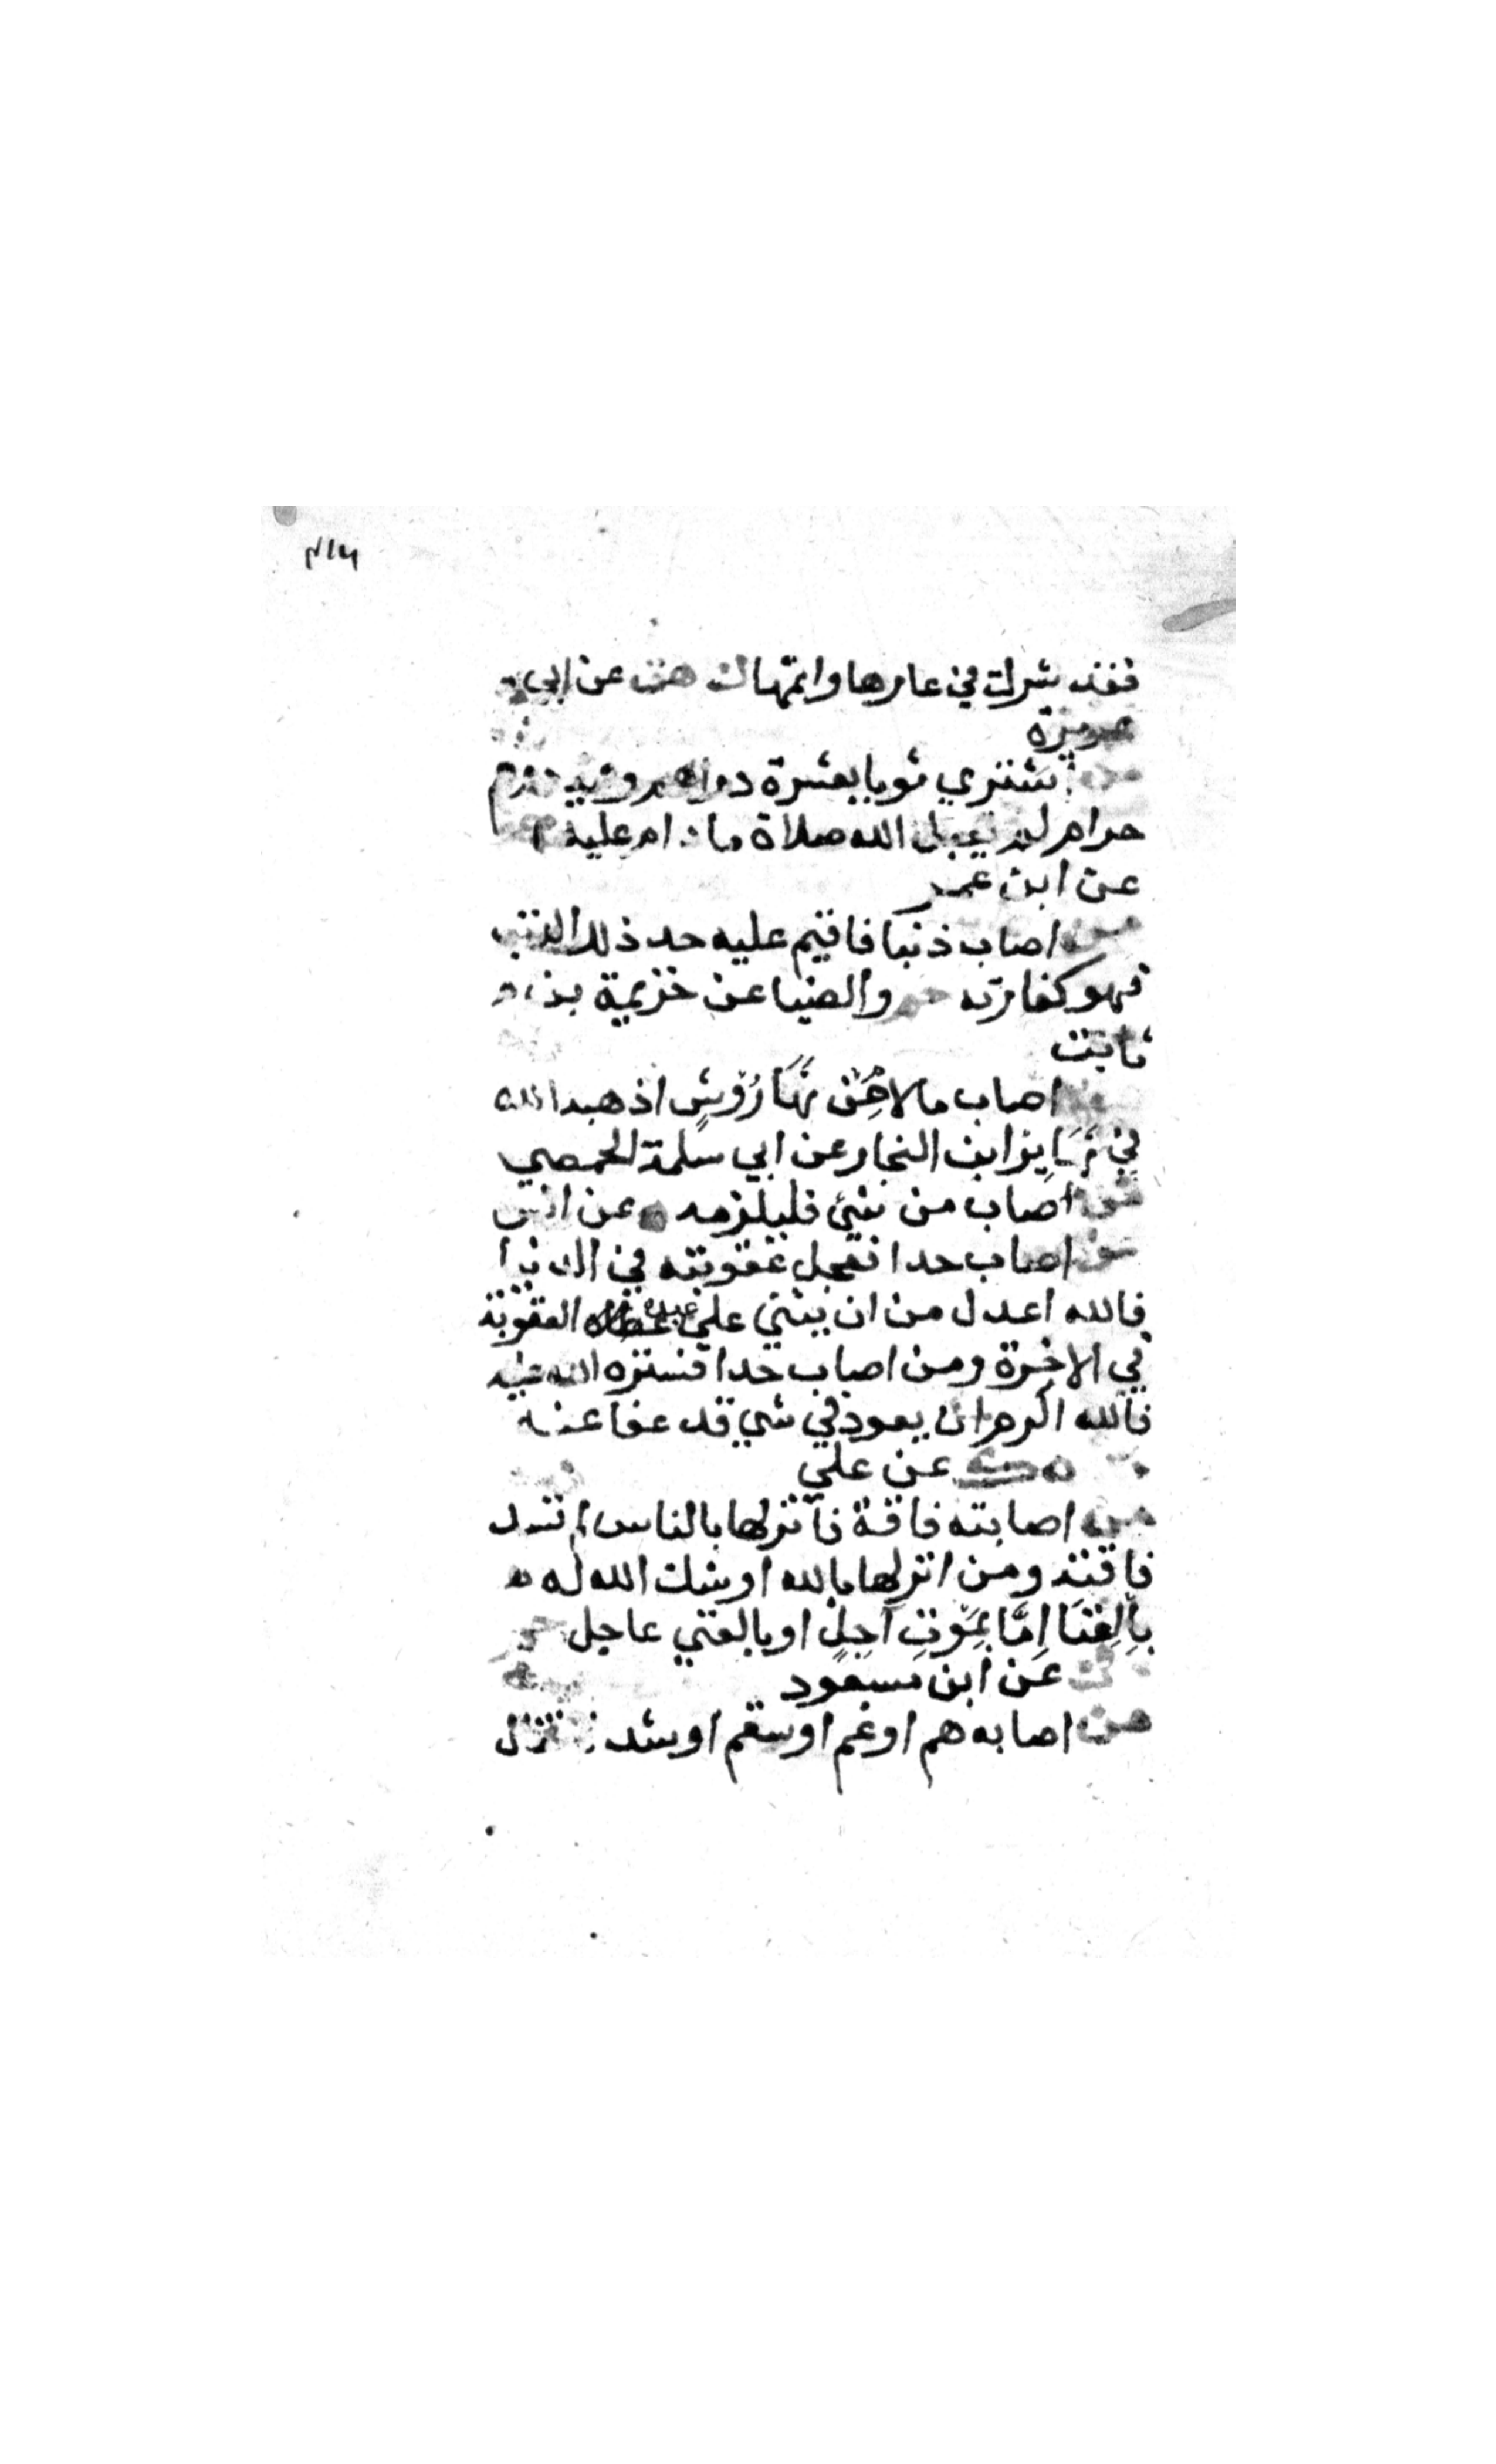 فقد شرك في عارها واثمها ك هق عن ابي
هريرة
من اشتري ثوبا بعشرة دراهم وفيه درهم
حرام لم يقبل الله صلاة ما دام عليه
عن ابن عمر
من اصاب ذنبا فاقيم عليه حد ذلك الذنب
فهو كفارته حم والضيا عن خزيمة بن
ثابت
اصاب مالا مِن نَهَاوُشٍ اذهبه الله
في نَهَابِر ابن النجار عن ابي سلمة الحمصي
من اصاب من شئ فليلزمه عن انس
من اصاب حدا فعجل عقوبته في الدنيا
فالله اعدل من ان يثني علي عبده العقوبة
في الاخرة ومن اصاب حدا فستره الله عليه
فالله اكرم ان يعود في شي قد عفا عنه
ت ه ك عن علي
من اصابته فاقة فانزلها بالناس لم تسد
فاقته ومن انزلها بالله اوشك الله له
بِالغِنَا اِمَّا بِمَوْتٍ آجِلٍ او بالغني عاجل حم
ك عَن ابن مَسعود
من اصابه هم او غم او سقم او شدة فقال